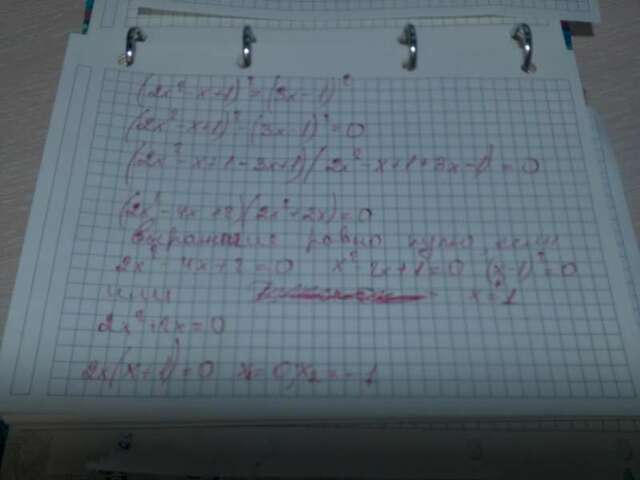 (2x²-x+1)²=(3x-1)²
(2x²-x+1)²-(3x-1)²=0
(2x²-x+1-3x+1)(2x²-x+1+3x-1)=0
(2x²-4x+2)(2x²+2x)=0
выражение равно нулю, если
2x²-4x+2=0 x²-2x+1=0 (x-1)²=0
или x=1
2x²+2x=0
2x(x+1)=0 x=0, x₂=-1